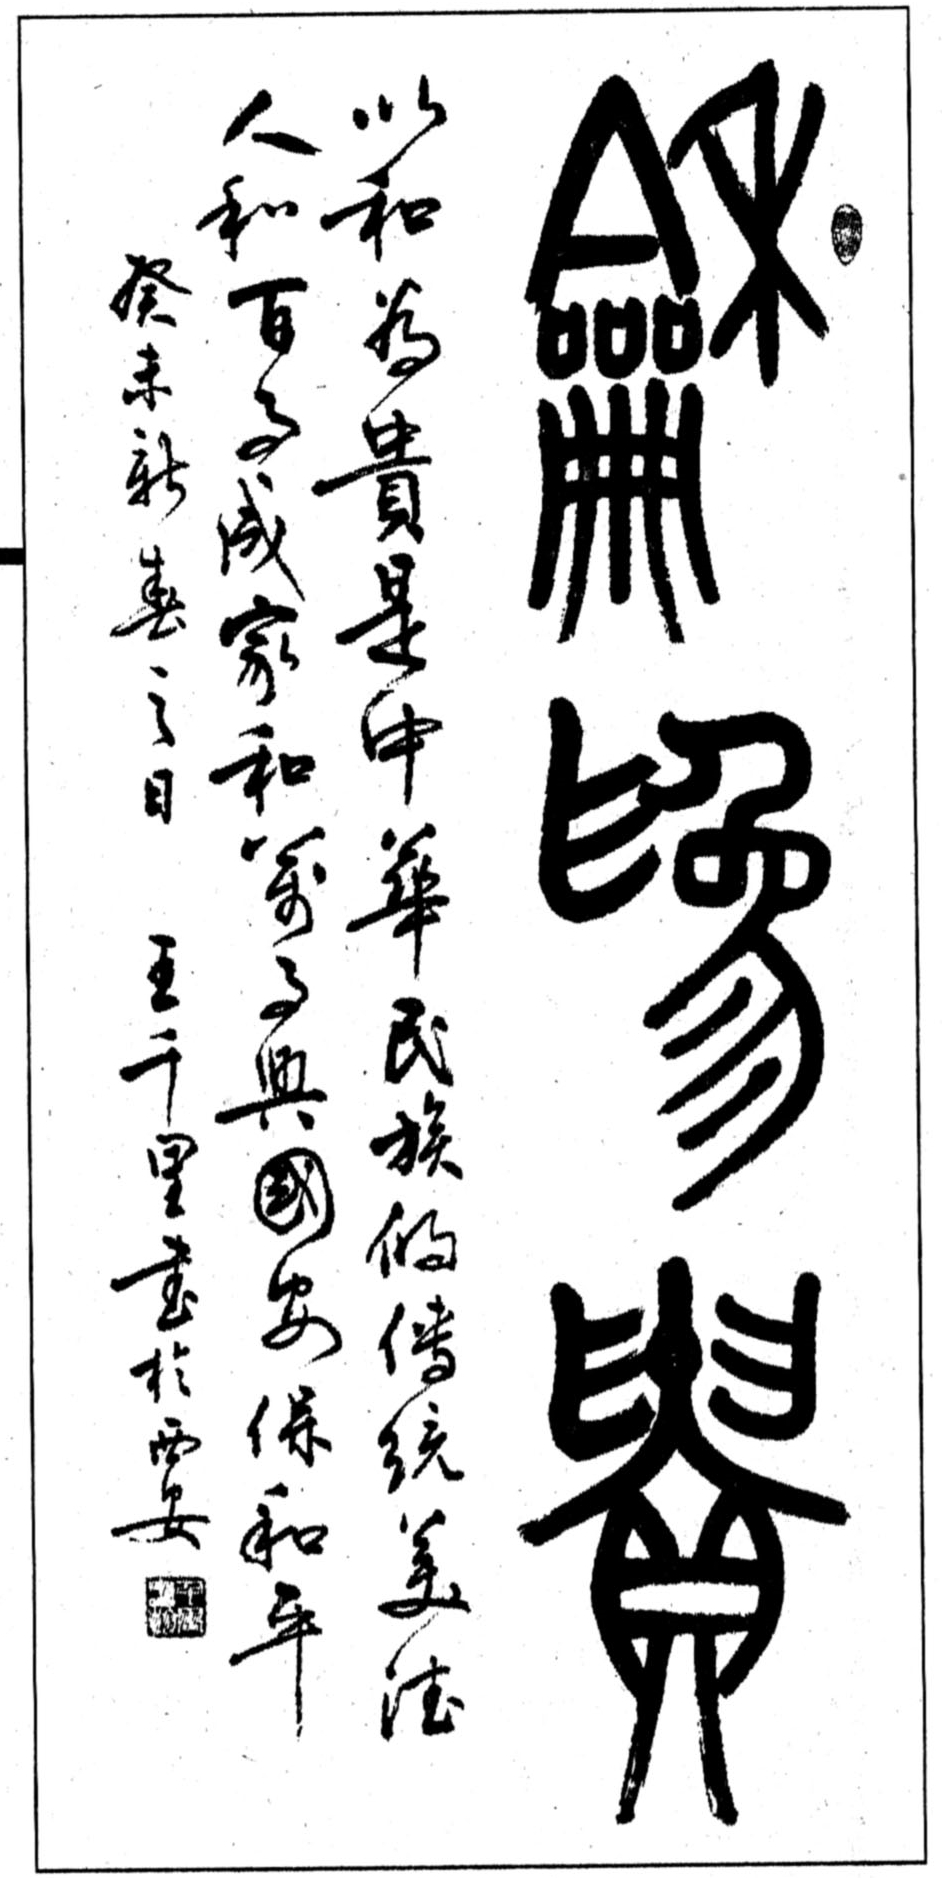 龢為貴
以和為貴是中華民族的傳統美德
人和百事成家和萬事興國安保和平
癸未新春之日 王千里書於西安